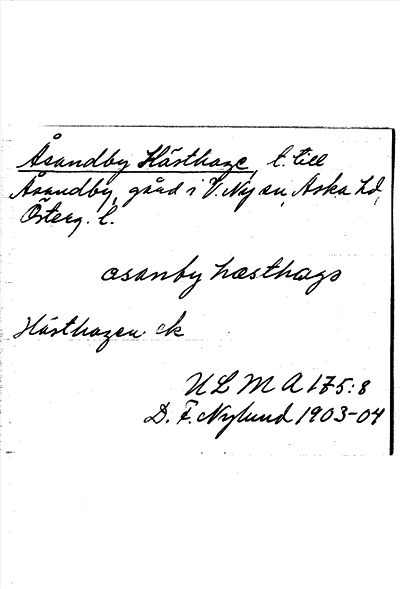 Åsandby Hästhage, t. till
Åsandby, gård i V. Ny sn, Aska hd,
Österg. l.
osanby hæsthags
Hästhagen ek
U L M A 175:8
D. F. Nylund 1903-04